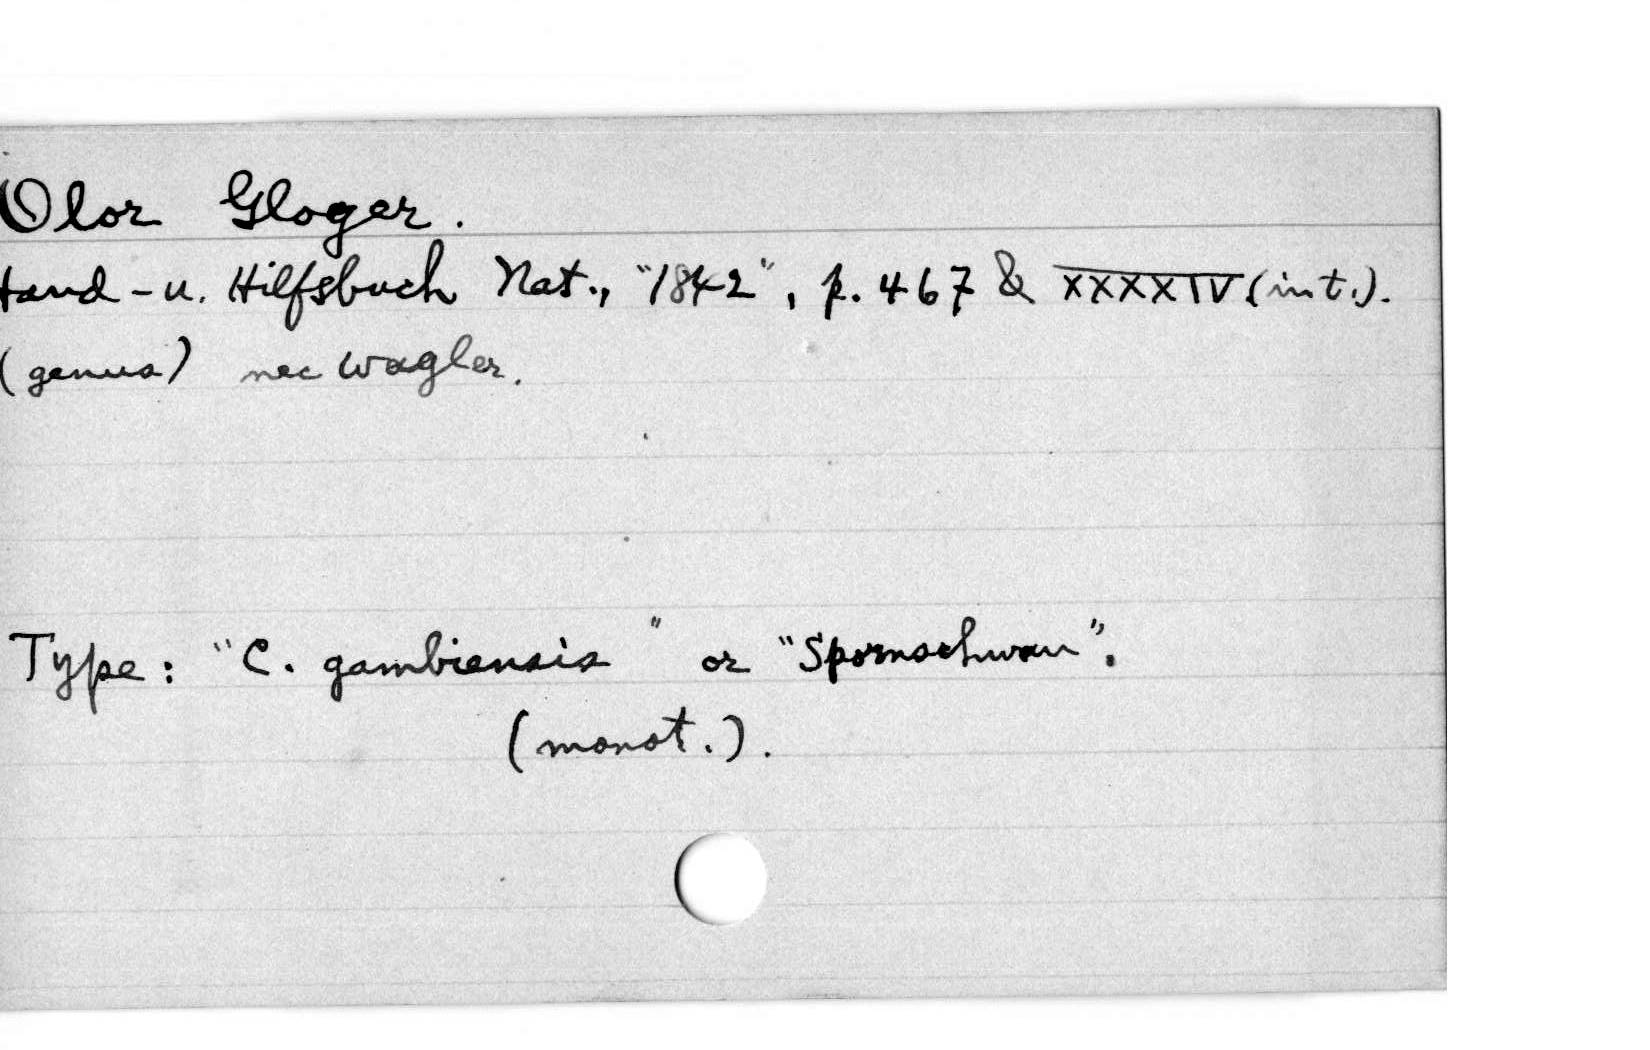 Olor Gloger.
Hand-u. Hilfsbuch Nat., "1842", p. 467 & XXXXIV (int.).
(genus) nec Wagler.
Type: "C. gambiensis" or "Spornschwan".
(monot.).